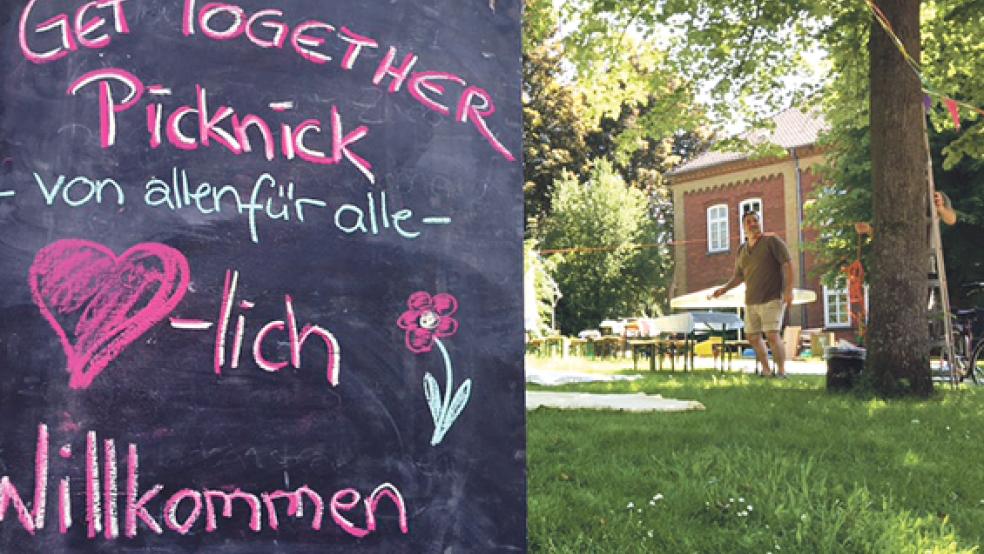 GET TOGETHER
Picknick
- von allen für alle -
-lich
Willkommen